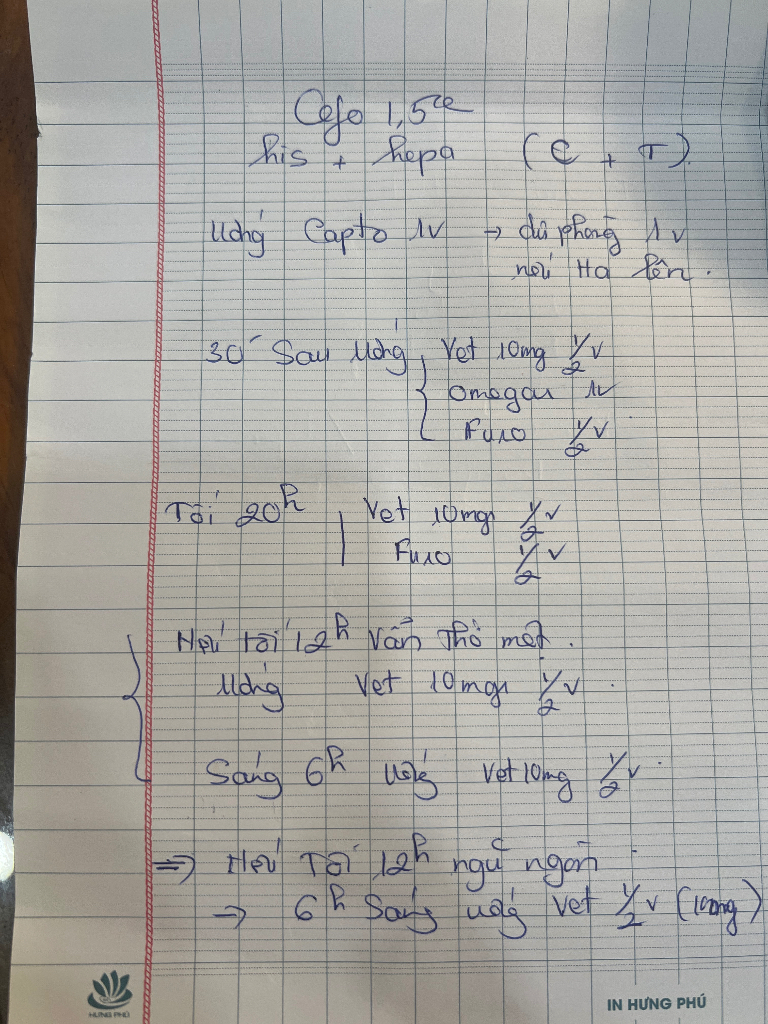 Cefo 1,5
his + hepa (C + T).
Uống Capto 1v → dự phòng 1v
nếu Ha lên.
30' Sau uống, Vet 10mg 1/2 v
omegau 1v
Furo 1/2 v
Tối 20h Vet 10mg 1/2 v
Furo 1/2 v
Nếu tối 12h vẫn thở mệt.
Uống Vet 10mg 1/2 v.
Sáng 6h uống Vet 10mg 1/2 v.
=> Nếu Tối 12h ngủ ngon
→ 6h Sáng uống Vet 1/2 v (10mg)
HƯNG PHÚ
IN HƯNG PHÚ